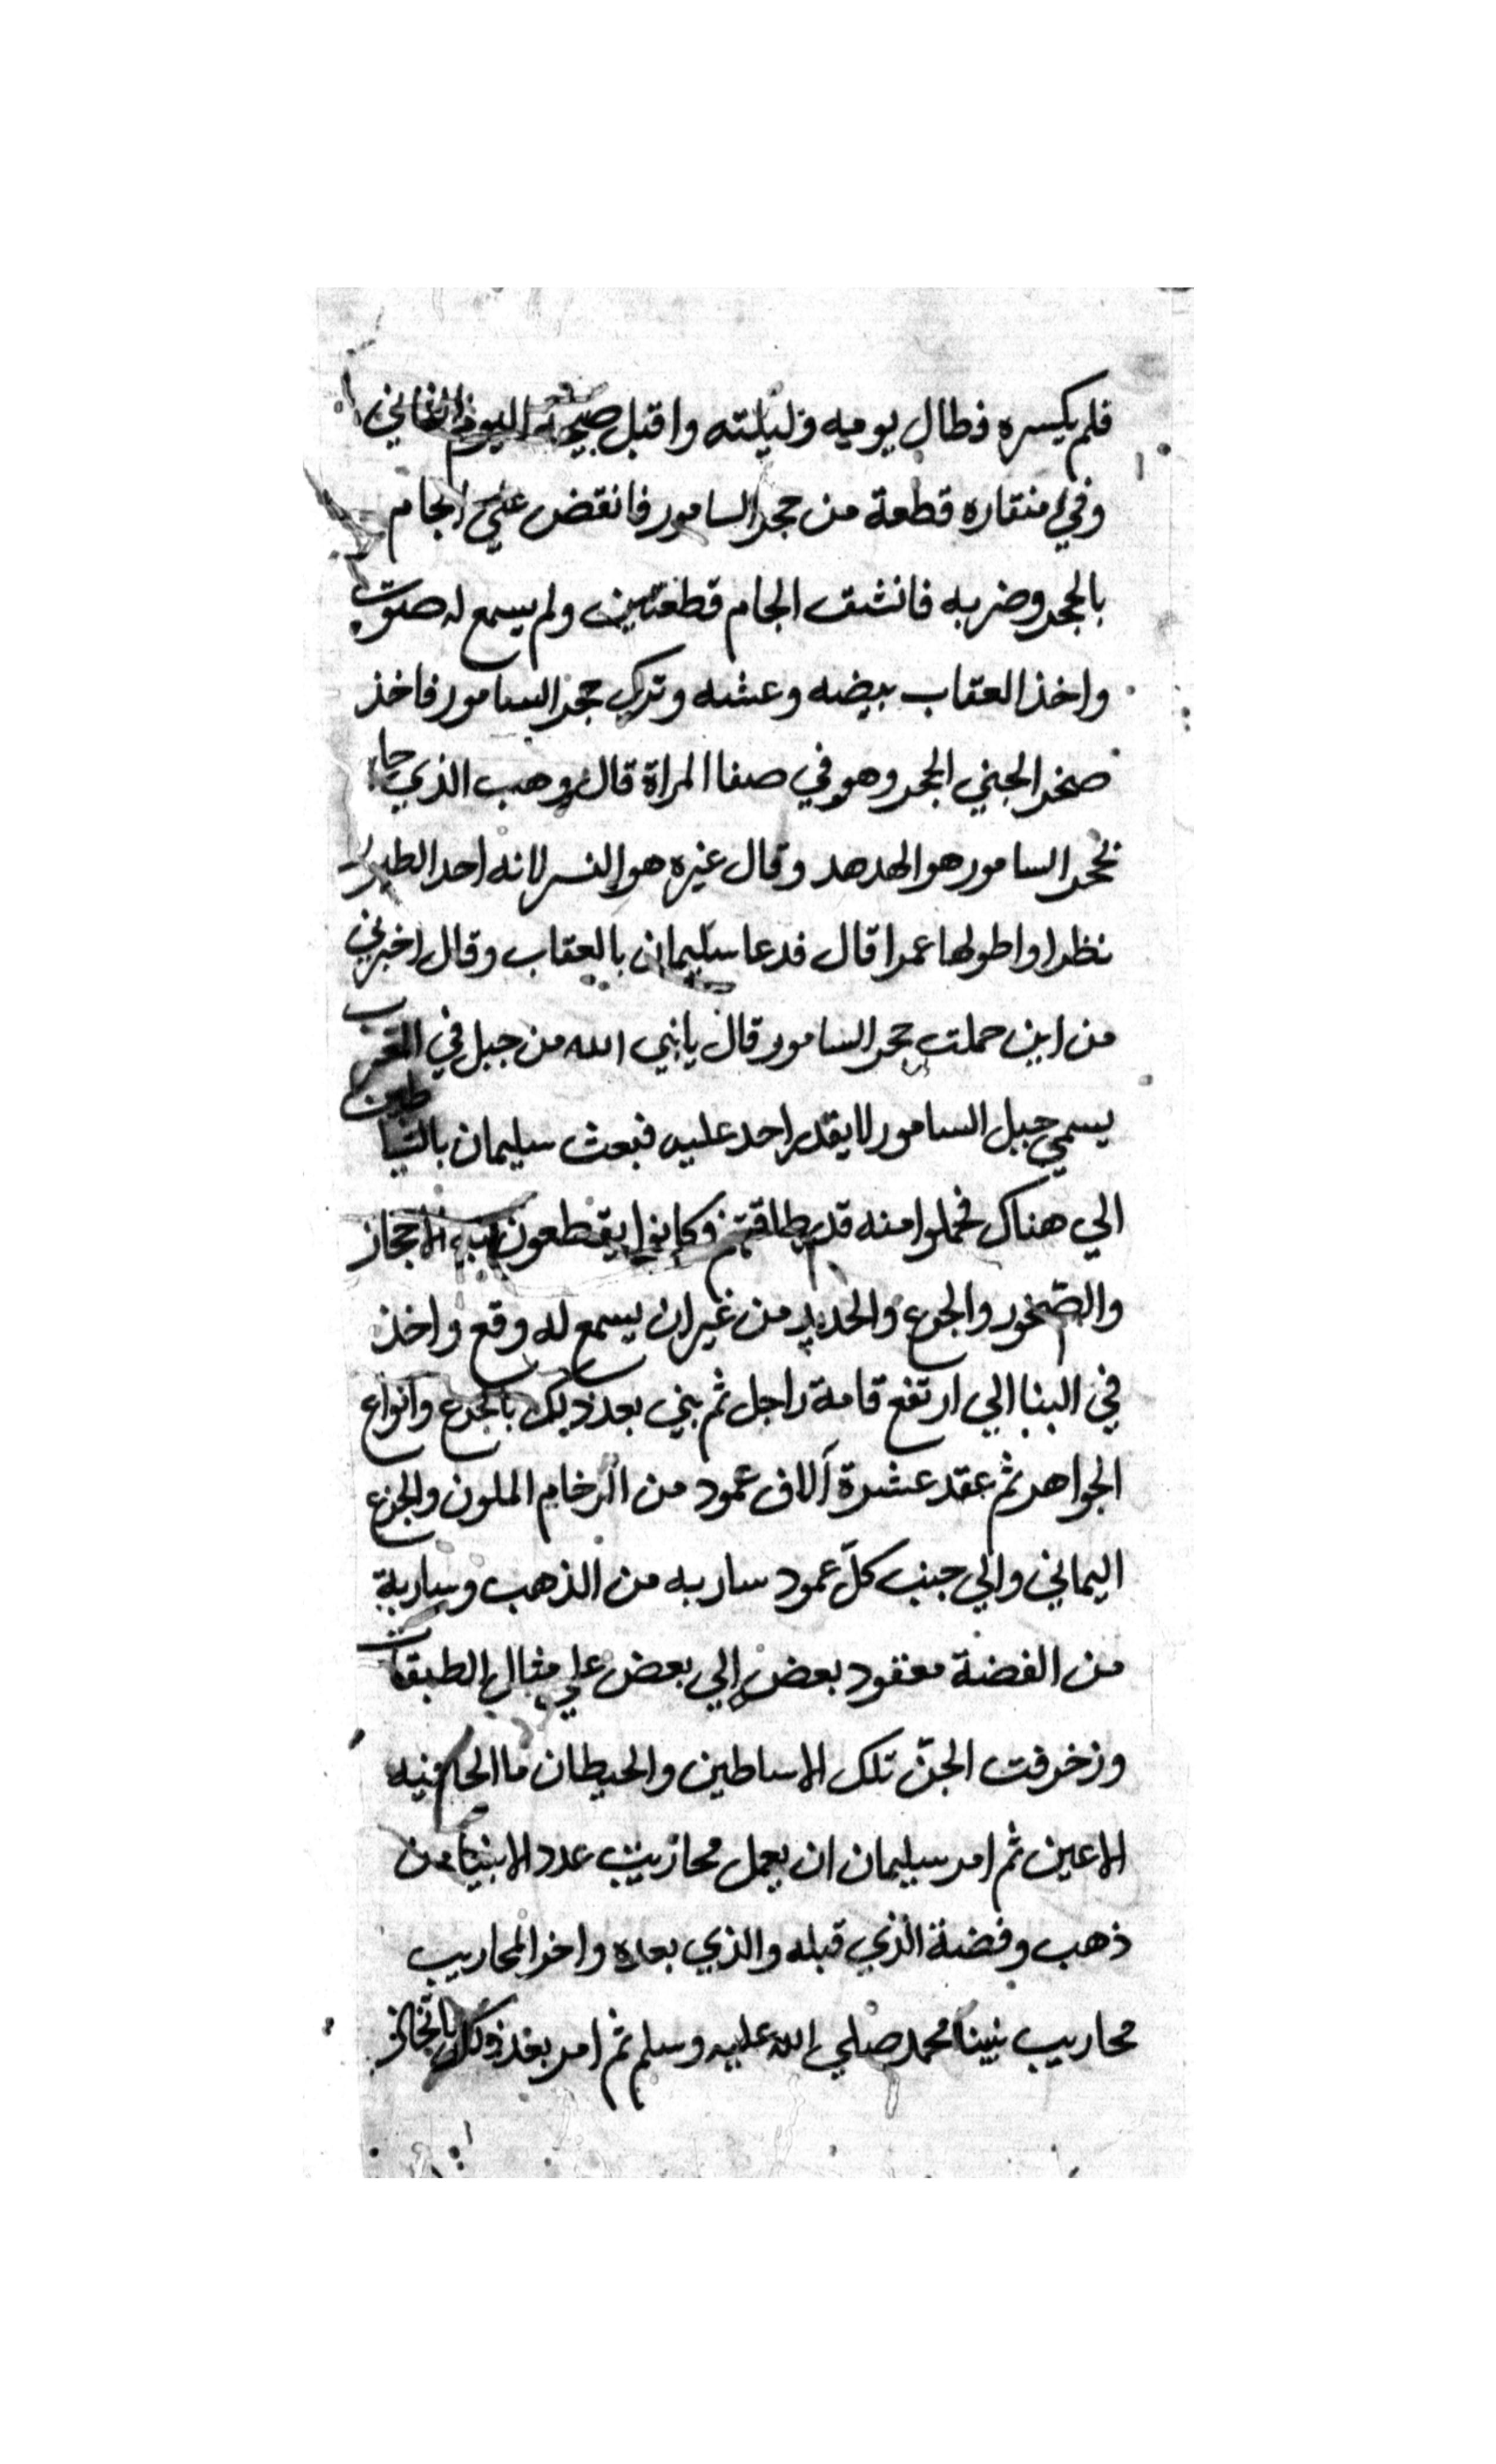 فلم يكسره فطال يوميه وليلته واقبل صبيحة اليوم الثاني
وفي منقاره قطعة من حجر السامور فانقض علي الجام
بالحجر وضربه فانشق الجام قطعتين ولم يسمع له صوت
واخذ العقاب بيضه وعشه وترك حجر السامور فاخذ
صخر الجني الحجر وهو في صفا المراة قال وهب الذي جا
بحجر السامور هو الهدهد وقال غيره هو النسر لانه احد الطير
نظرا واطولها عمرا قال فدعا سليمان بالعقاب وقال اخبرني
من اين حملت حجر السامور قال يا نبي الله من جبل في الغرب
يسمي جبل السامور لا يقدر احد عليه فبعث سليمان بالشياطين
الي هناك فحملوا منه قدر طاقتهم وكانوا يقطعون به الاحجار
والصخور والجزع والحديد من غير ان يسمع له وقع واخذ
في البنا الي ارتفع قامة راجل ثم بني بعد ذلك بالجزع وانواع
الجواهر ثم عقد عشرة آلاف عمود من الرخام الملون والجزع
اليماني والي جنب كلّ عمود ساريه من الذهب وسارية
من الفضة معقود بعض الي بعض علي مثال الطبقات
وزخرفت الجنّ تلك الاساطين والحيطان ما الحا فيه
الاعين ثم امر سليمان ان يعمل محاريب عدد الانبيا من
ذهب وفضة الذي قبله والذي بعده واخر المحاريب
محاريب نبينا محمد صلي الله عليه وسلم ثم امر بعد ذلك باتخاذ